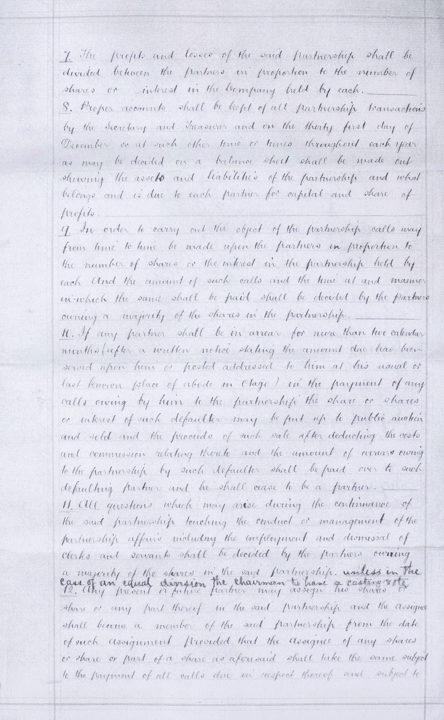 7. The profits and losses of the said partnership shall be
divided between the partners in proportion to the number of
shares or interest in the Company held by each.
8. Proper accounts shall be kept of all partnership transactions
by the Secretary and Treasurer and on the thirty first day of
December or at such other time or times throughout each year
as may be decided on a balance sheet shall be made out
shewing the assets and liabilities of the partnership and what
belongs and is due to each partner for capital and share of
profits.
9. In order to carry out the object of the partnership calls may
from time to time be made upon the partners in proportion to
the number of shares or the interest in the partnership held by
each And the amount of such calls and the time at and manner
in which the same shall be paid shall be decided by the partners
owning a majority of the shares in the partnership.
10. If any partner shall be in arrear for more than two calendar
months (after a written notice stating the amount due has been
served upon him or posted addressed to him at his usual or
last known place of abode in Otago) in the payment of any
calls owing by him to the partnership the share or shares
or interest of such defaulter may be put up to public auction
and sold and the proceeds of such sale after deducting the costs
and commission relating thereto and the amount of arrears owing
to the partnership by such defaulter shall be paid over to such
defaulting partner and he shall cease to be a partner.
11. All questions which may arise during the continuance of
the said partnership touching the conduct or management of the
partnership affairs including the employment and dismissal of
clerks and servants shall be decided by the partners owning
a majority of the shares in the said partnership. unless in the
case of an equal division the chairman to have a casting vote
12. Any present or future partner may assign his shares or
share or any part thereof in the said partnership and the assignee
shall become a member of the said partnership from the date
of such assignment provided that the assignee of any shares
or share or part of a share as aforesaid shall take the same subject
to the payment of all calls due in respect thereof and subject to